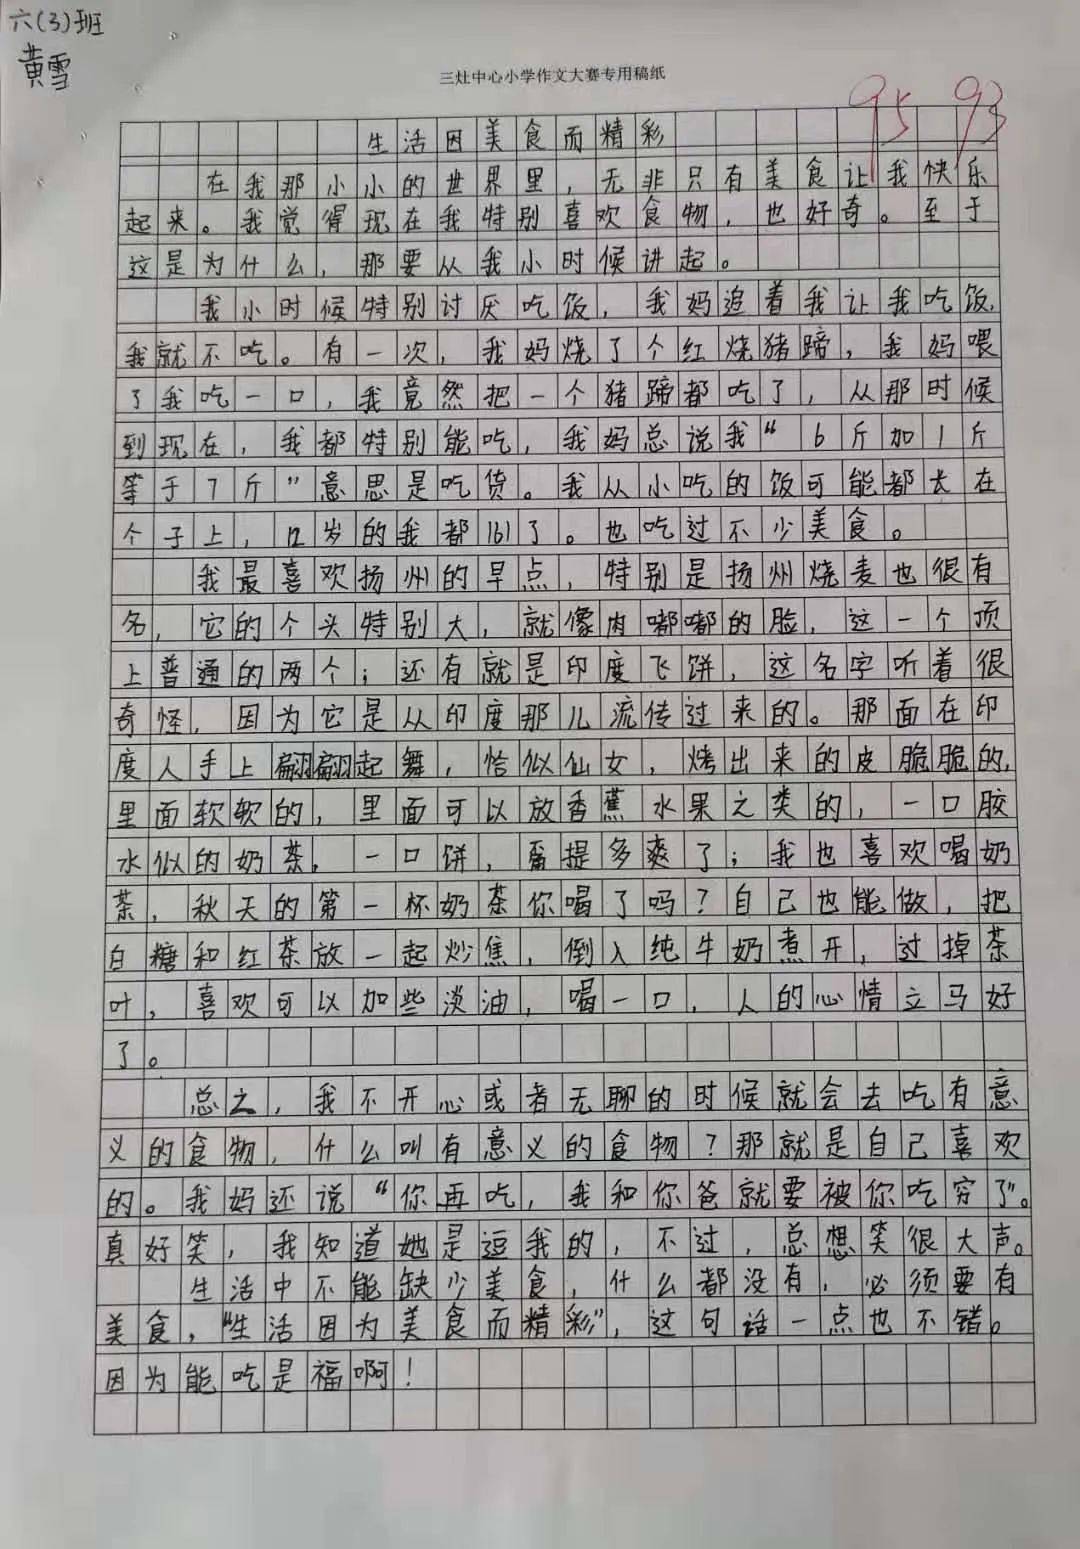 六(3)班
黄雪
三灶中心小学作文大赛专用稿纸
95 93
生活因美食而精彩
在我那小小的世界里，无非只有美食让我快乐
起来。我觉得现在我特别喜欢食物，也好奇。至于
这是为什么，那要从我小时候讲起。
我小时候特别讨厌吃饭，我妈追着我让我吃饭，
我就不吃。有一次，我妈烧了个红烧猪蹄，我妈喂
了我吃一口，我竟然把一个猪蹄都吃了，从那时候
到现在，我都特别能吃，我妈总说我“6斤加1斤
等于7斤”意思是吃货。我从小吃的饭可能都长在
个子上，12岁的我都161了。也吃过不少美食。
我最喜欢扬州的早点，特别是扬州烧麦也很有
名，它的个头特别大，就像肉嘟嘟的脸，这一个顶
上普通的两个；还有就是印度飞饼，这名字听着很
奇怪，因为它是从印度那儿流传过来的。那面在印
度人手上翩翩起舞，恰似仙女，烤出来的皮脆脆的，
里面软软的，里面可以放香蕉水果之类的，一口胶
水似的奶茶，一口饼，甭提多爽了；我也喜欢喝奶
茶，秋天的第一杯奶茶你喝了吗？自己也能做，把
白糖和红茶放一起炒焦，倒入纯牛奶煮开，过掉茶
叶，喜欢可以加些淡油，喝一口，人的心情立马好
了。
总之，我不开心或者无聊的时候就会去吃有意
义的食物，什么叫有意义的食物？那就是自己喜欢
的。我妈还说“你再吃，我和你爸就要被你吃穷了”。
真好笑，我知道她是逗我的，不过，总想笑很大声。
生活中不能缺少美食，什么都没有，必须要有
美食，“生活因为美食而精彩”，这句话一点也不错。
因为能吃是福啊！